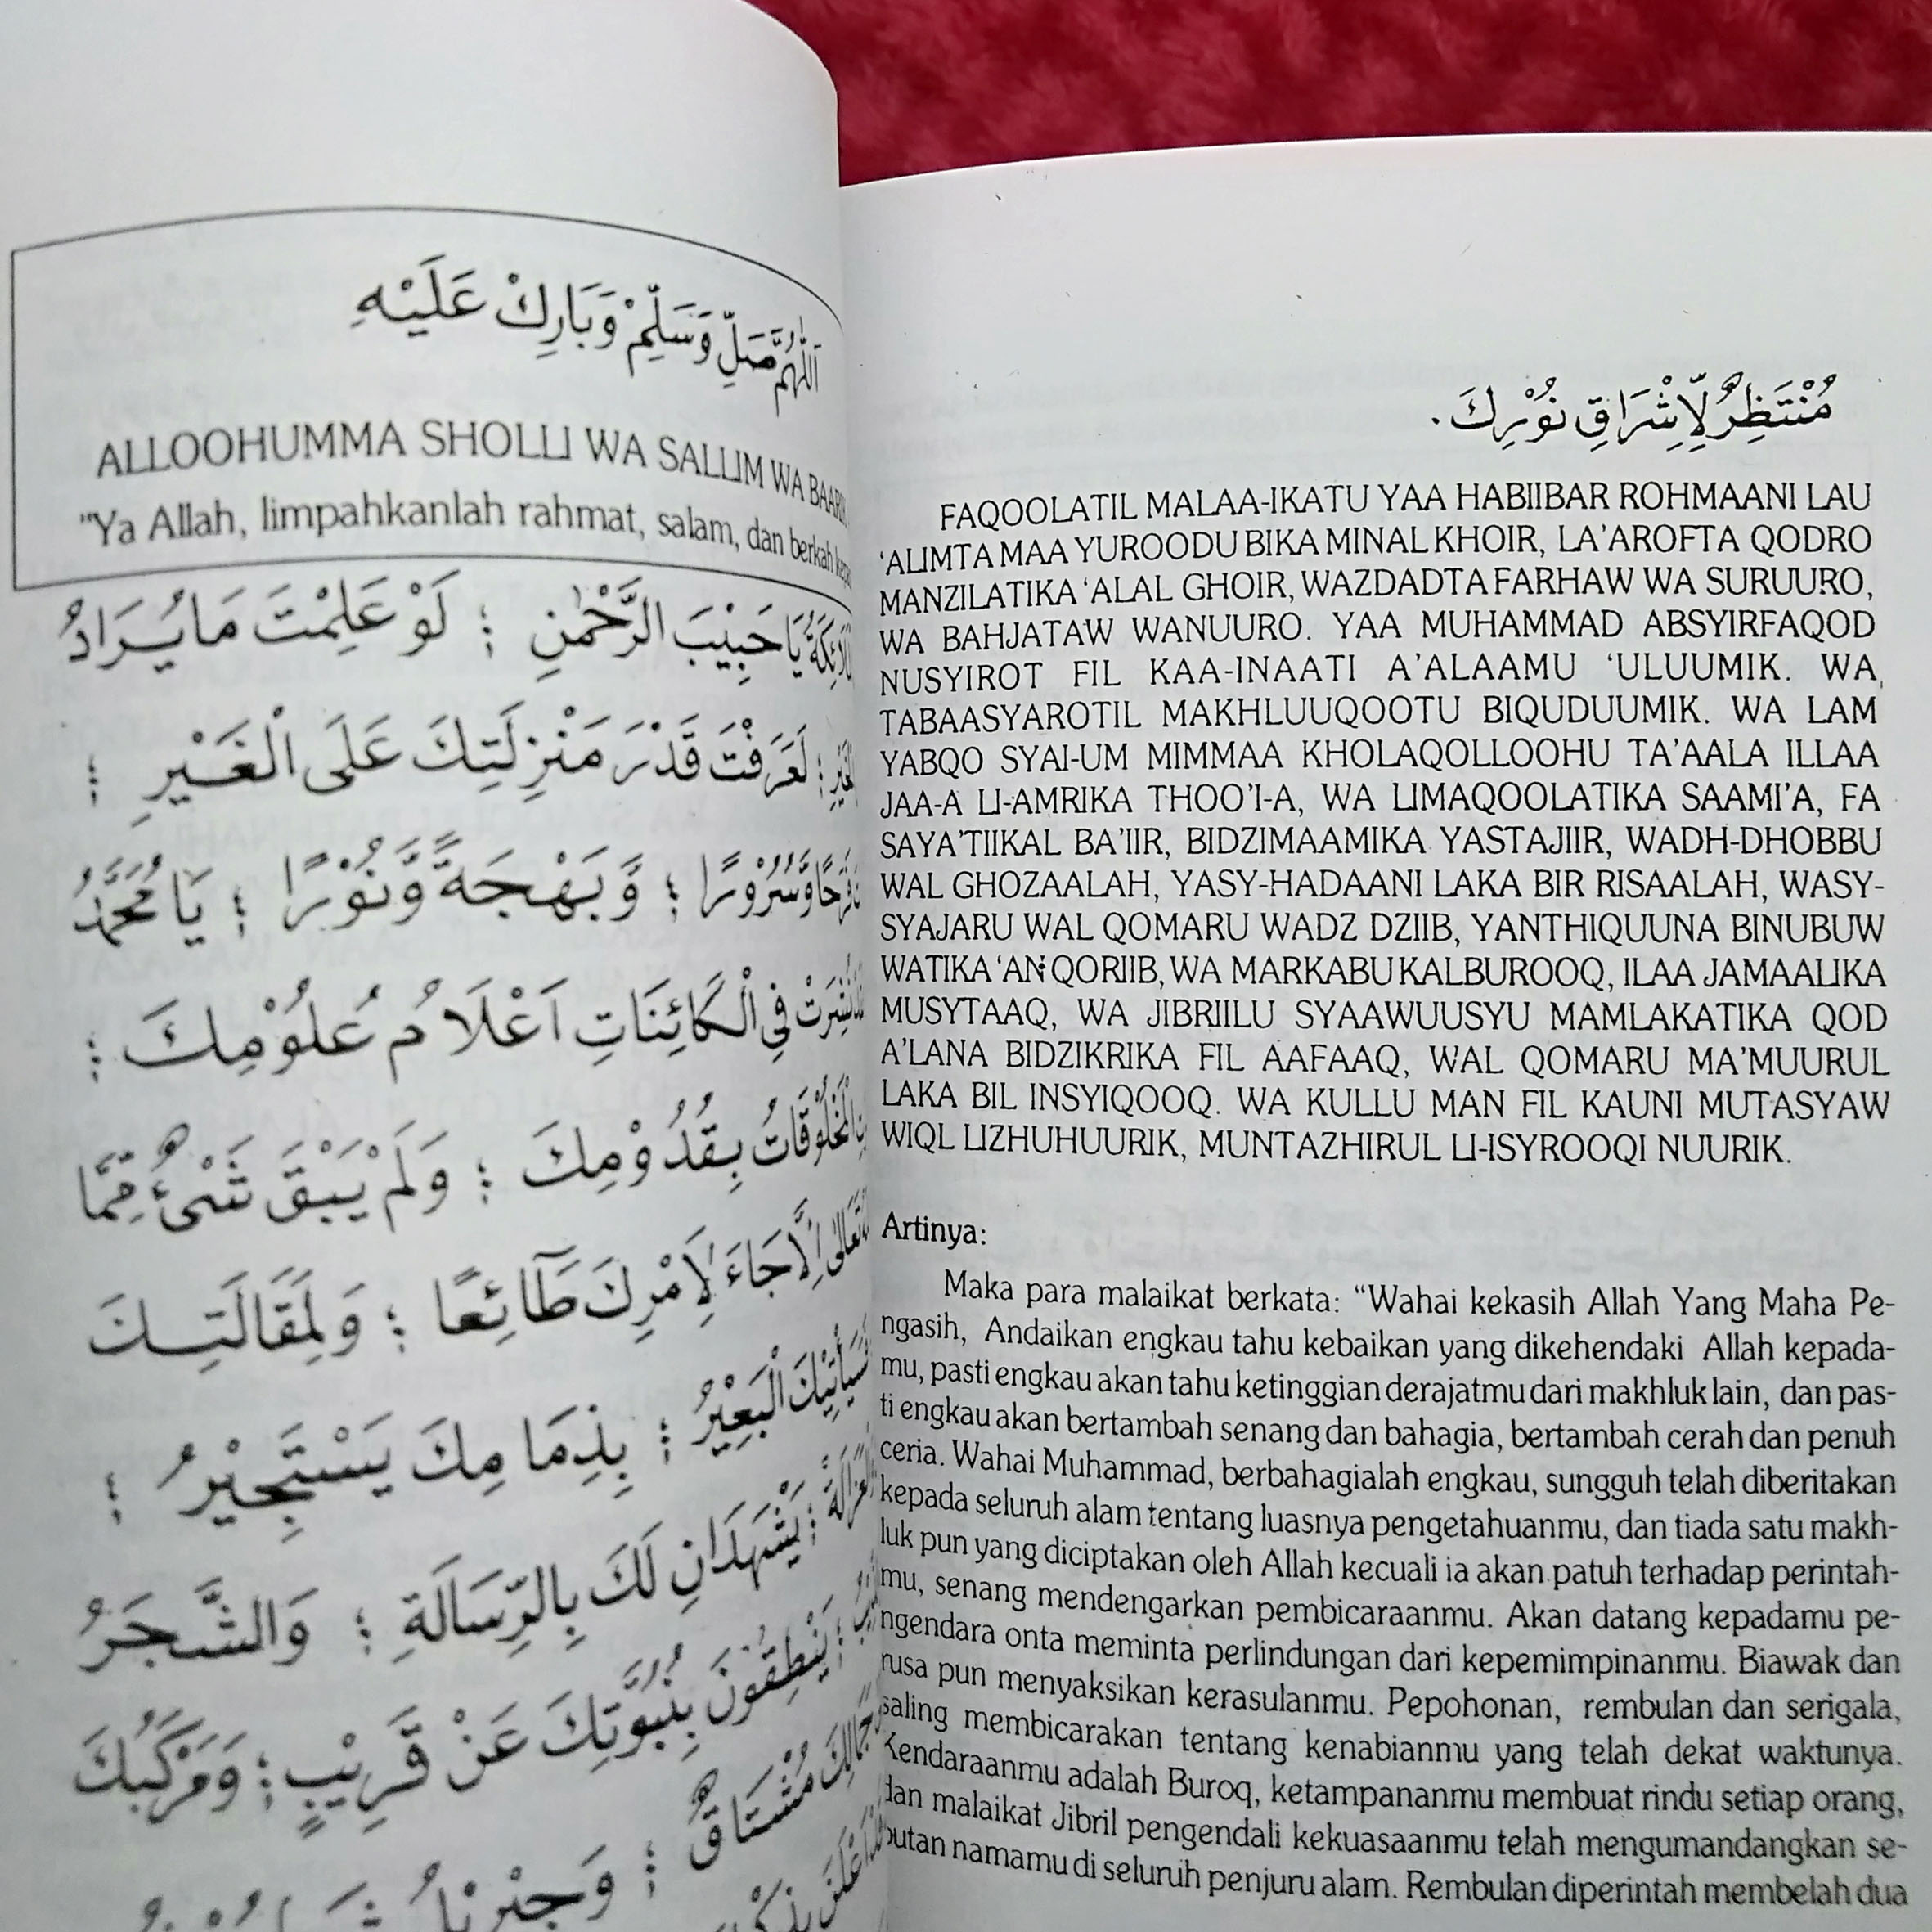 اَللّٰهُمَّ صَلِّ وَسَلِّمْ وَبَارِكْ عَلَيْهِ
ALLOOHUMMA SHOLLI WA SALLIM WA
"Ya Allah, limpahkanlah rahmat, salam, dan berkah
يَا حَبِيْبَ الرَّحْمٰنِ ؛ لَوْ عَلِمْتَ مَا يُرَادُ
لَعَرَفْتَ قَدْرَ مَنْزِلَتِكَ عَلَى الْغَيْرِ ؛
فَرَحًا وَّسُرُوْرًا ؛ وَّبَهْجَةً وَّنُوْرًا ؛ يَا مُحَمَّدُ
نُشِرَتْ فِي الْكَائِنَاتِ اَعْلَامُ عُلُوْمِكَ ؛
بِقُدُوْمِكَ ؛ وَلَمْ يَبْقَ شَيْءٌ مِّمَّا
تَعَالٰى اِلَّا جَاءَ لِاَمْرِكَ طَآئِعًا ؛ وَلِمَقَالَتِكَ
الْبَعِيْرُ ؛ بِذِمَامِكَ يَسْتَجِيْرُ ؛
يَشْهَدَانِ لَكَ بِالرِّسَالَةِ ؛ وَالشَّجَرُ
يَنْطِقُوْنَ بِنُبُوَّتِكَ عَنْ قَرِيْبٍ ؛ وَمَرْكَبُكَ
جَمَالِكَ مُشْتَاقٌ ؛
مُنْتَظِرٌ لِّاِشْرَاقِ نُوْرِكَ .
FAQOOLATIL MALAA-IKATU YAA HABIIBAR ROHMAANI LAU
'ALIMTA MAA YUROODU BIKA MINAL KHOIR, LA'AROFTA QODRO
MANZILATIKA 'ALAL GHOIR, WAZDADTA FARHAW WA SURUURO,
WA BAHJATAW WANUURO. YAA MUHAMMAD ABSYIRFAQOD
NUSYIROT FIL KAA-INAATI A'ALAAMU 'ULUUMIK. WA
TABAASYAROTIL MAKHLUUQOOTU BIQUDUUMIK. WA LAM
YABQO SYAI-UM MIMMAA KHOLAQOLLOOHU TA'AALA ILLAA
JAA-A LI-AMRIKA THOO'I-A, WA LIMAQOOLATIKA SAAMI'A, FA
SAYA'TIIKAL BA'IIR, BIDZIMAAMIKA YASTAJIIR, WADH-DHOBBU
WAL GHOZAALAH, YASY-HADAANI LAKA BIR RISAALAH, WASY-
SYAJARU WAL QOMARU WADZ DZIIB, YANTHIQUUNA BINUBUW
WATIKA 'AN QORIIB, WA MARKABUKALBUROOQ, ILAA JAMAALIKA
MUSYTAAQ, WA JIBRIILU SYAAWUUSYU MAMLAKATIKA QOD
A'LANA BIDZIKRIKA FIL AAFAAQ, WAL QOMARU MA'MUURUL
LAKA BIL INSYIQOOQ. WA KULLU MAN FIL KAUNI MUTASYAW
WIQL LIZHUHUURIK, MUNTAZHIRUL LI-ISYROOQI NUURIK.
Artinya:
Maka para malaikat berkata: "Wahai kekasih Allah Yang Maha Pe-
ngasih, Andaikan engkau tahu kebaikan yang dikehendaki Allah kepada-
mu, pasti engkau akan tahu ketinggian derajatmu dari makhluk lain, dan pas-
ti engkau akan bertambah senang dan bahagia, bertambah cerah dan penuh
ceria. Wahai Muhammad, berbahagialah engkau, sungguh telah diberitakan
kepada seluruh alam tentang luasnya pengetahuanmu, dan tiada satu makh-
luk pun yang diciptakan oleh Allah kecuali ia akan patuh terhadap perintah-
mu, senang mendengarkan pembicaraanmu. Akan datang kepadamu pe-
ngendara onta meminta perlindungan dari kepemimpinanmu. Biawak dan
rusa pun menyaksikan kerasulanmu. Pepohonan, rembulan dan serigala,
saling membicarakan tentang kenabianmu yang telah dekat waktunya.
Kendaraanmu adalah Buroq, ketampananmu membuat rindu setiap orang,
dan malaikat Jibril pengendali kekuasaanmu telah mengumandangkan se-
butan namamu di seluruh penjuru alam. Rembulan diperintah membelah dua